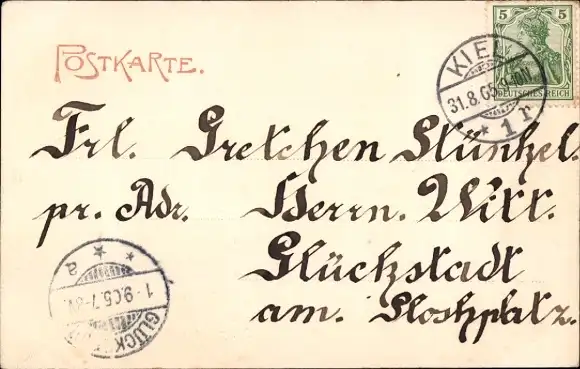 POSTKARTE.
5
DEUTSCHES REICH
KIEL
31.8.05. 9-10N
* 1 r
Frl. Gretchen Stünkel
pr. Adr. Herrn. Witt.
Glückstadt
am.
* * a
1-9.05.7-8V.
GLÜCK